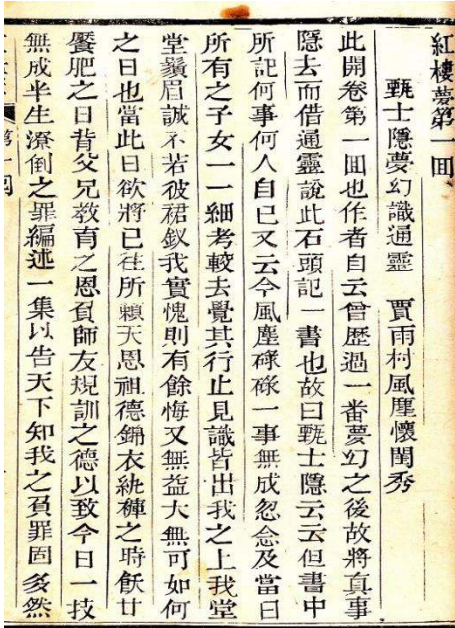 紅樓夢第一囘
甄士隱夢幻識通靈　賈雨村風塵懷閨秀
此開卷第一囘也作者自云曾歷過一番夢幻之後故將真事
隱去而借通靈說此石頭記一書也故曰甄士隱云云但書中
所記何事何人自己又云今風塵碌碌一事無成忽念及當日
所有之子女一一細考較去覺其行止見識皆出我之上我堂
堂鬚眉誠不若彼裙釵我實愧則有餘悔又無益大無可如何
之日也當此日欲將已徃所賴天恩祖德錦衣紈褲之時飫甘
饜肥之日背父兄教育之恩負師友規訓之德以致今日一技
無成半生潦倒之罪編述一集以告天下知我之負罪固多然
第一囘